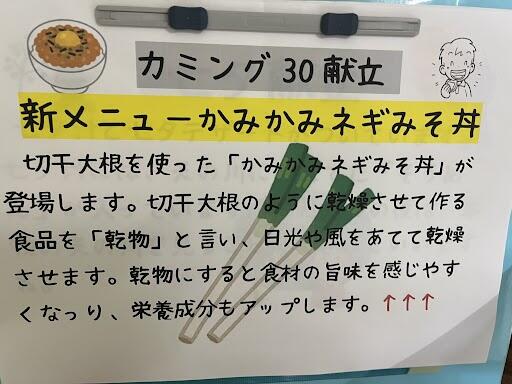 カミング30献立
新メニューかみかみネギみそ丼
切干大根を使った「かみかみネギみそ丼」が
登場します。切干大根のように乾燥させて作る
食品を「乾物」と言い、日光や風をあてて乾燥
させます。乾物にすると食材の旨味を感じやす
くなっり、栄養成分もアップします。↑↑↑